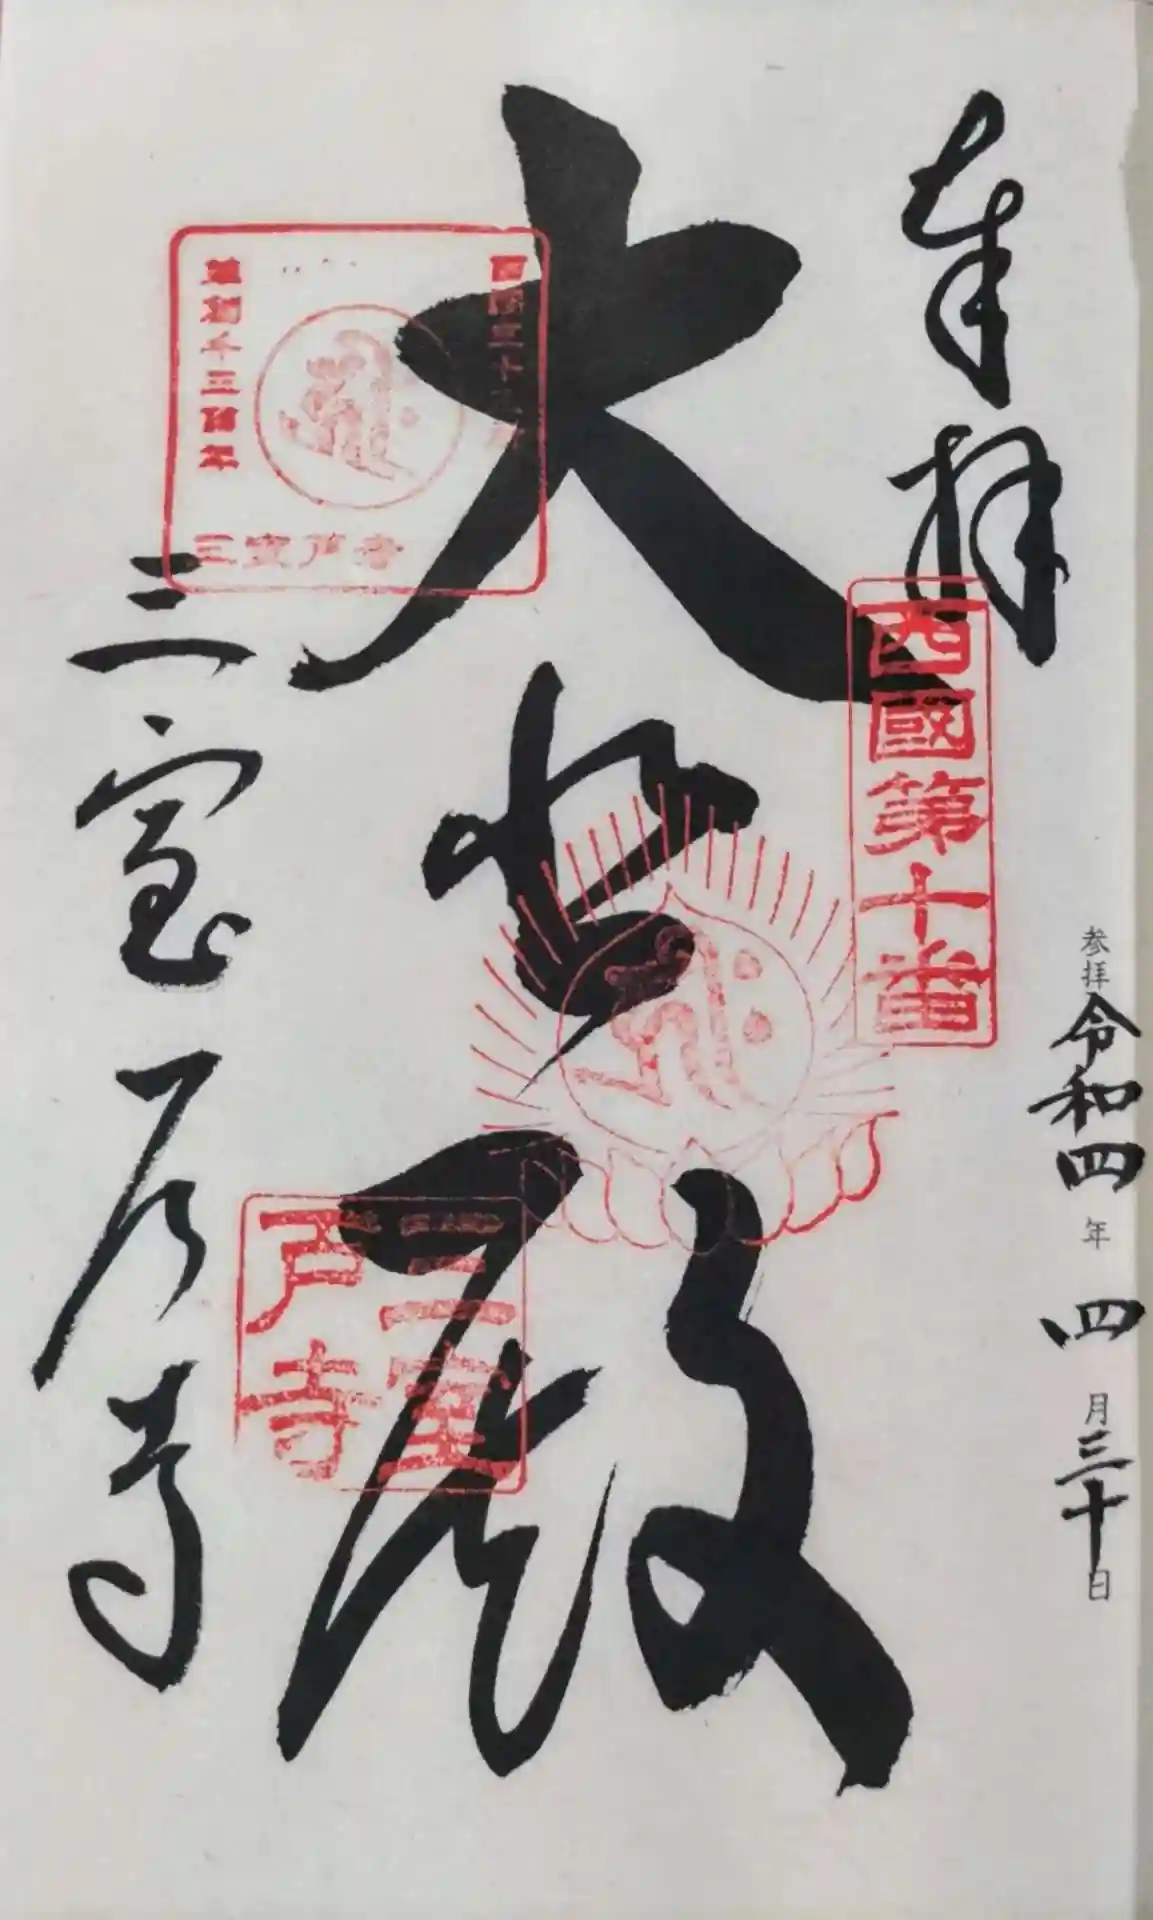 奉拝
西國第十番
参拝 令和四年 四月三十日
大悲殿
西国三十三所
草創千三百年
三室戸寺
三室戸寺
三室戸寺